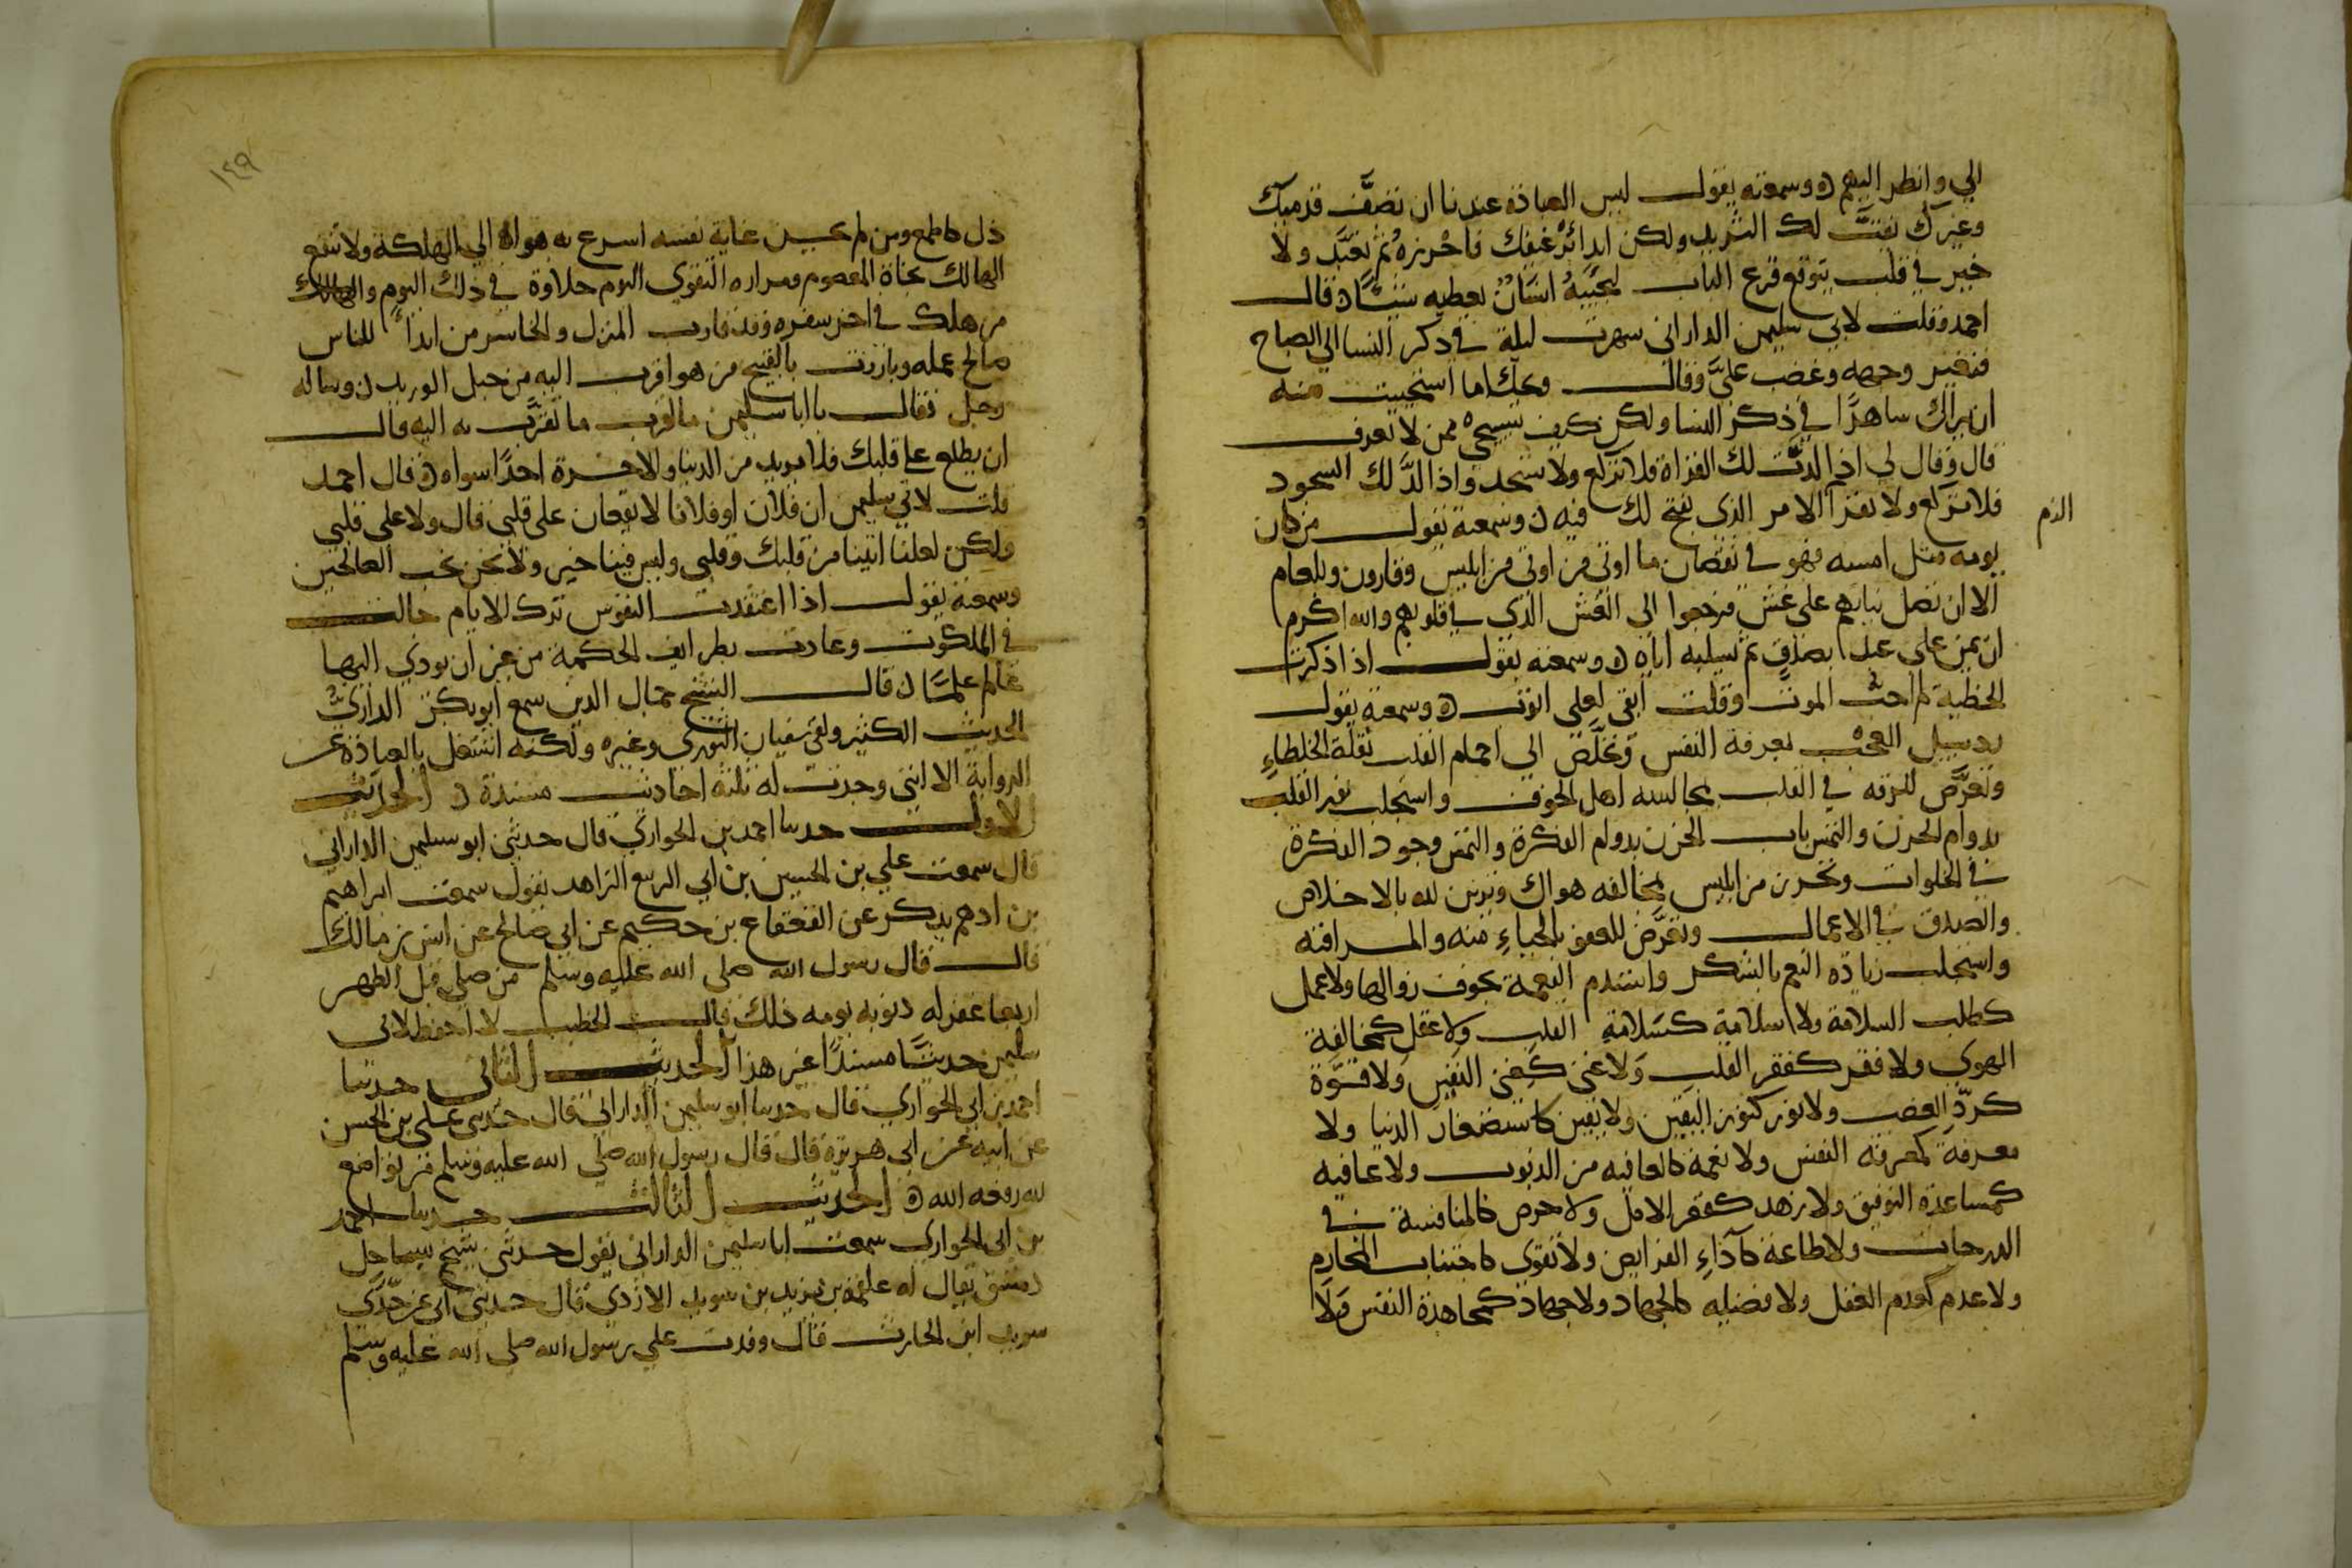 الي وانظر اليهم ه وسمعته يقول ليس العبادة عندنا ان تصف قدميك
وغيرك يفت لك الثريد ولكن ابدا برغيفك فاحرزه ثم تعبد ولا
خير في قلب يتوقع قرع الباب لجيبه انسان يعطيه شيئا ه قال
احمد وقلت لابي سليمن الداراني سهرت ليلة في ذكر النسا الي الصباح
فتغير وجهه وغضب علي وقال ويحك اما استحييت منه
ان يراك ساهرا في ذكر النسا ولكن كيف تستحي ممن لا تعرف
قال وقال لي اذا لذت لك القراة فلا تركع ولا تسجد واذا الذ لك السجود
فلا تركع ولا تقرا الامر الذي يفتح لك فيه الزم ه وسمعته يقول من كان
يومه مثل امسه فهو في نقصان ما اوتي من اوتي من ابليس وقارون وبلعام
الا ان اصل نياتهم علي غش فرجعوا الي الغش الذي في قلوبهم والله اكرم
ان يمن علي عبد بصدق ثم يسلبه اياه ه وسمعته يقول اذا ذكرت
الخطية لم احب الموت وقلت ابقي لعلي اتوب ه وسمعته يقول
رد سبيل العجب بمعرفة النفس وتخلص الي اجمام القلب بقلة الخلطاء
وتعرض للرقه في القلب بمجالسه اهل الخوف واستجلب نور القلب
بدوام الحزن والتمس باب الحزن بدوام الفكرة والتمس وجود الفكرة
في الخلوات وتحرز من ابليس بمخالفه هواك وتزين لله بالاخلاص
والصدق في الاعمال وتعرض للعفو بالحياء منه والمراقبه
واستجلب زيادة النعم بالشكر واستدم النعمة بخوف زوالها ولا عمل
كطلب السلامة ولا سلامة كسلامة القلب ولا عقل كمخالفة
الهوي ولا فقر كفقر القلب ولا غني كغني النفس ولا قوة
كرد الغضب ولا نور كنور اليقين ولا يقين كاستصغار الدنيا ولا
معرفة كمعرفة النفس ولا نعمة كالعافيه من الذنوب ولا عافيه
كمساعدة التوفيق ولا زهد كقصر الامل ولا حرص كالمنافسة في
الدرجات ولا طاعة كاداء الفرايض ولا تقوي كاجتناب المحارم
ولا عدم كعدم العقل ولا فضيله كالجهاد ولا جهاد كمجاهدة النفس ولا
١٤٩
ذل كالطمع ومن لم يحسن رعاية نفسه اسرع به هواه الي الهلكة ولا تنفع
الهالك نجاة المعصوم ومراره التقوي اليوم حلاوة في ذلك اليوم والهالك
من هلك في اخر سفره وقد قارب المنزل والخاسر من ابدا للناس
صالح عمله وبارز بالقبيح من هو اقرب اليه من حبل الوريد ه وساله
رجل فقال يا ابا سليمن ما اقرب ما تقرب به اليه قال
ان يطلع علي قلبك فلا يريد من الدنيا والاخرة احدا سواه ه قال احمد
قلت لابي سليمن ان فلان وفلانا لا يقعان علي قلبي قال ولا علي قلبي
ولكن لعلنا اتينا من قلبك وقلبي وليس فينا خير ولا نحن نحب الصالحين
وسمعته يقول اذا اعتقدت النفوس ترك الاثام جالت
في الملكوت وعادت بطرايف الحكمة من غير ان يودي اليها
عالم علما ه قال الشيخ جمال الدين سمع ابو بكر الداراني
الحديث الكثير ولقي سفيان الثوري وغيره ولكنه اشتغل بالعبادة عن
الرواية الا انني وجدت له ثلثة احاديث مسندة ه الحديث
الاول حدثنا احمد بن الحواري قال حدثني ابو سليمن الداراني
قال سمعت علي بن الحسين بن ابي الربيع الزاهد يقول سمعت ابراهيم
بن ادهم يذكر عن القعقاع بن حكيم عن ابي صالح عن انس بن مالك
قال قال رسول الله صلي الله عليه وسلم من صلي قبل الظهر
اربعا غفر له ذنوبه يومه ذلك قال الخطيب لا احفظ لابي
سليمن حديثا مسندا غير هذا الحديث الثاني حدثنا
احمد بن ابي الحواري قال حدثنا ابو سليمن الداراني قال حدثني علي بن الحسن
عن ابيه عن ابي هريرة قال قال رسول الله صلي الله عليه وسلم من تواضع
لله رفعه الله ه الحديث الثالث حدثنا احمد
بن ابي الحواري سمعت ابا سليمن الداراني يقول حدثني شيخ بساحل
دمشق يقال له علقمة بن يزيد بن سويد الازدي قال حدثني ابي عن جدي
سويد ابن الحارث قال وفدت علي رسول الله صلي الله عليه وسلم